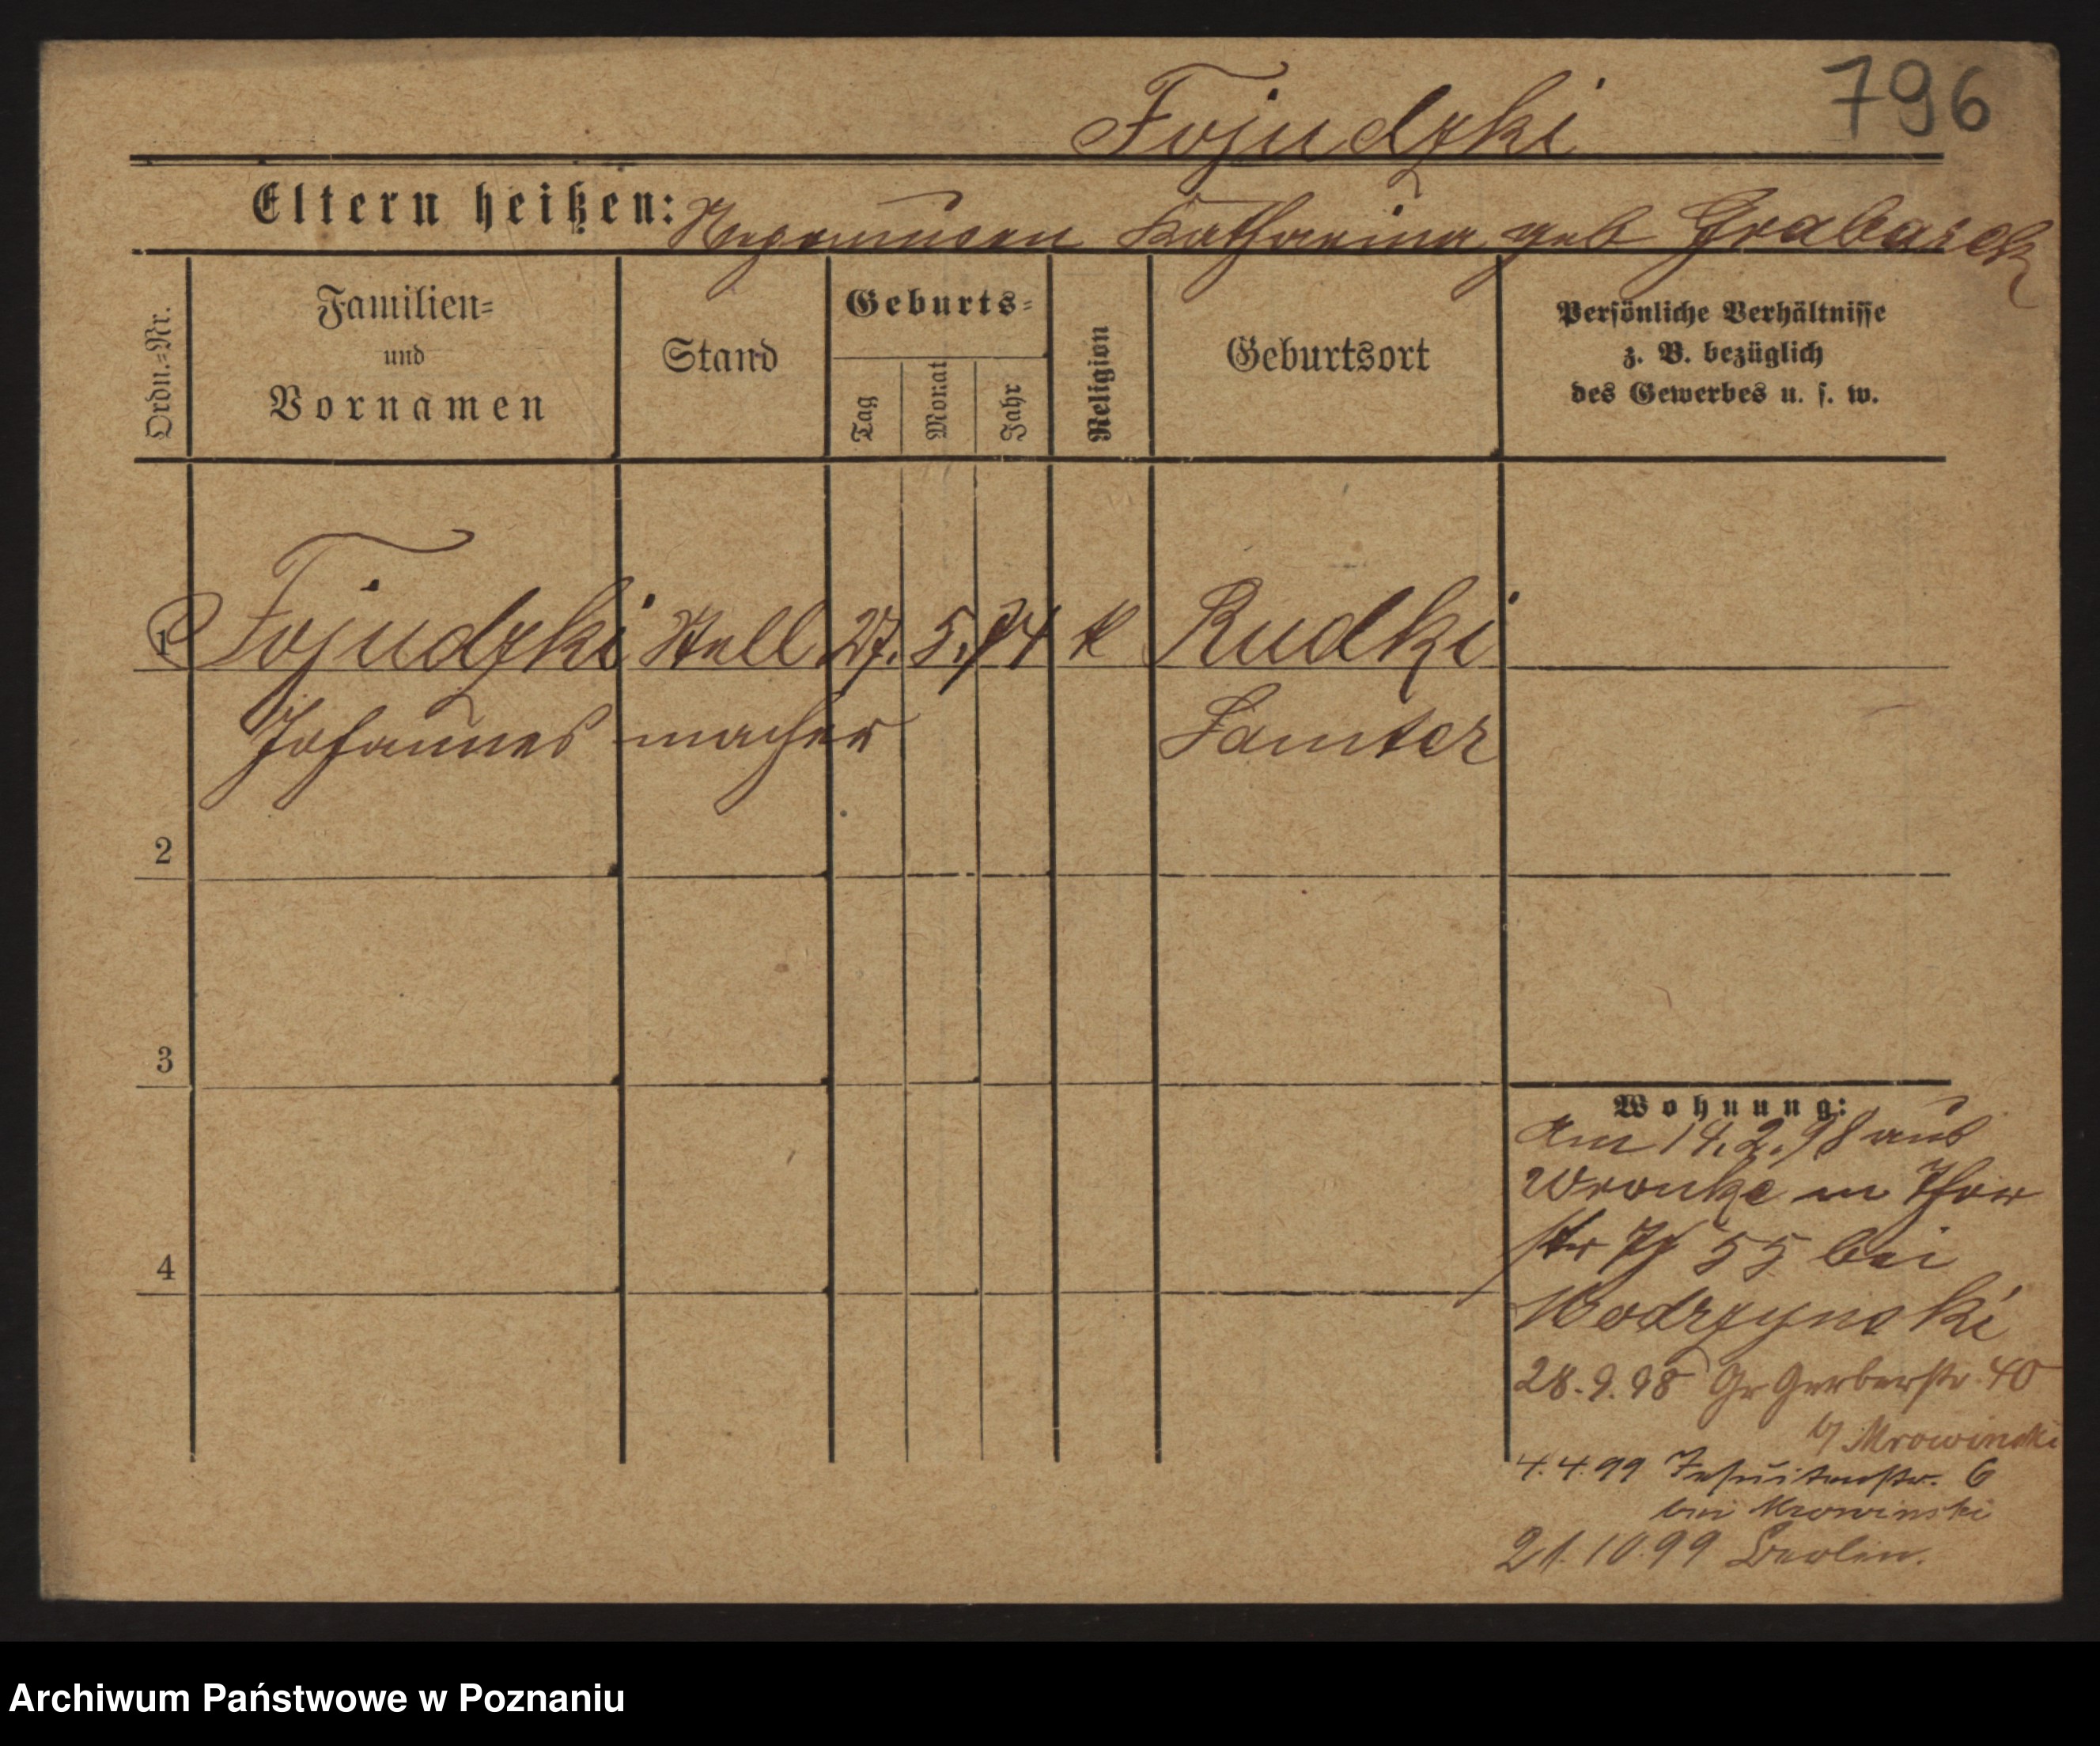 796
Fojudzki
Eltern heißen: Nepomucen Katharina geb Grabarek
Ordn.-Nr.
Familien- und Vornamen
Stand
Geburts-
Tag
Monat
Jahr
Religion
Geburtsort
Persönliche Verhältnisse
z. B. bezüglich
des Gewerbes u. s. w.
1 Fojudzki Stell 27. 5. 74 k Rudki
Johannes macher Samter
2
3
4
Wohnung:
Am 14.2.98 aus
Wronke in Thor
str 55 bei
Wodrzynski
28.9.98 Gr Gerberstr. 40
b/ Mrowinski
4.4.99 Jesuitenstr. 6
bei Mrowinski
21.10.99 Berlin.
Archiwum Państwowe w Poznaniu